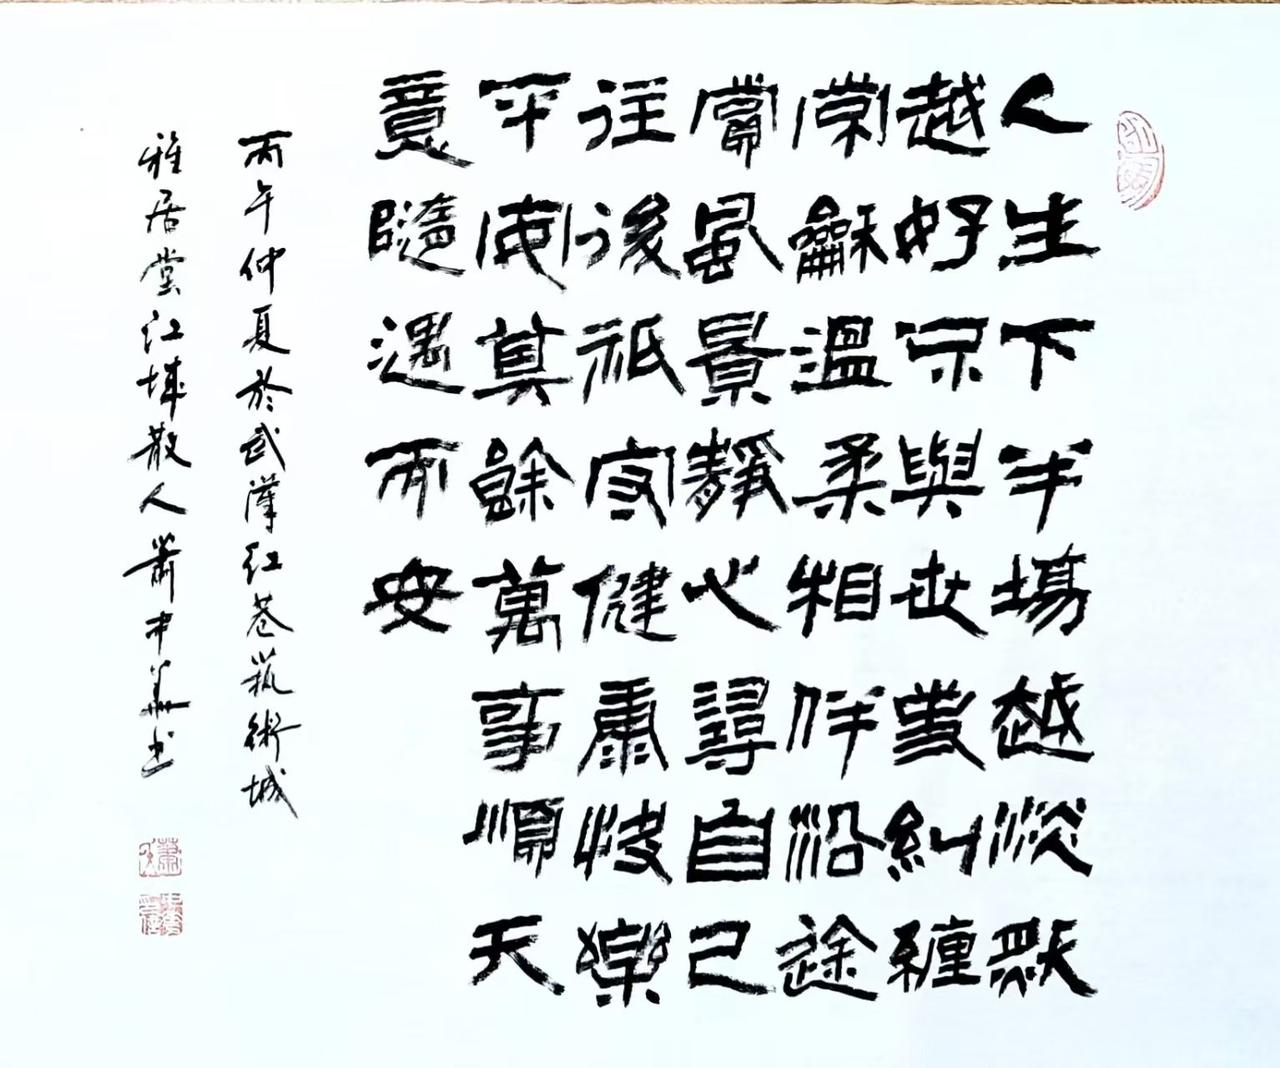 人生下半場越淡默
越好不與世事糾纏
常龢溫柔相伴沿途
賞風景靜心尋自己
往後祇守健康快樂
平安其餘萬事順天
意隨遇而安
丙午仲夏於武漢紅巷藝術城
雅居堂江城散人蕭中華書